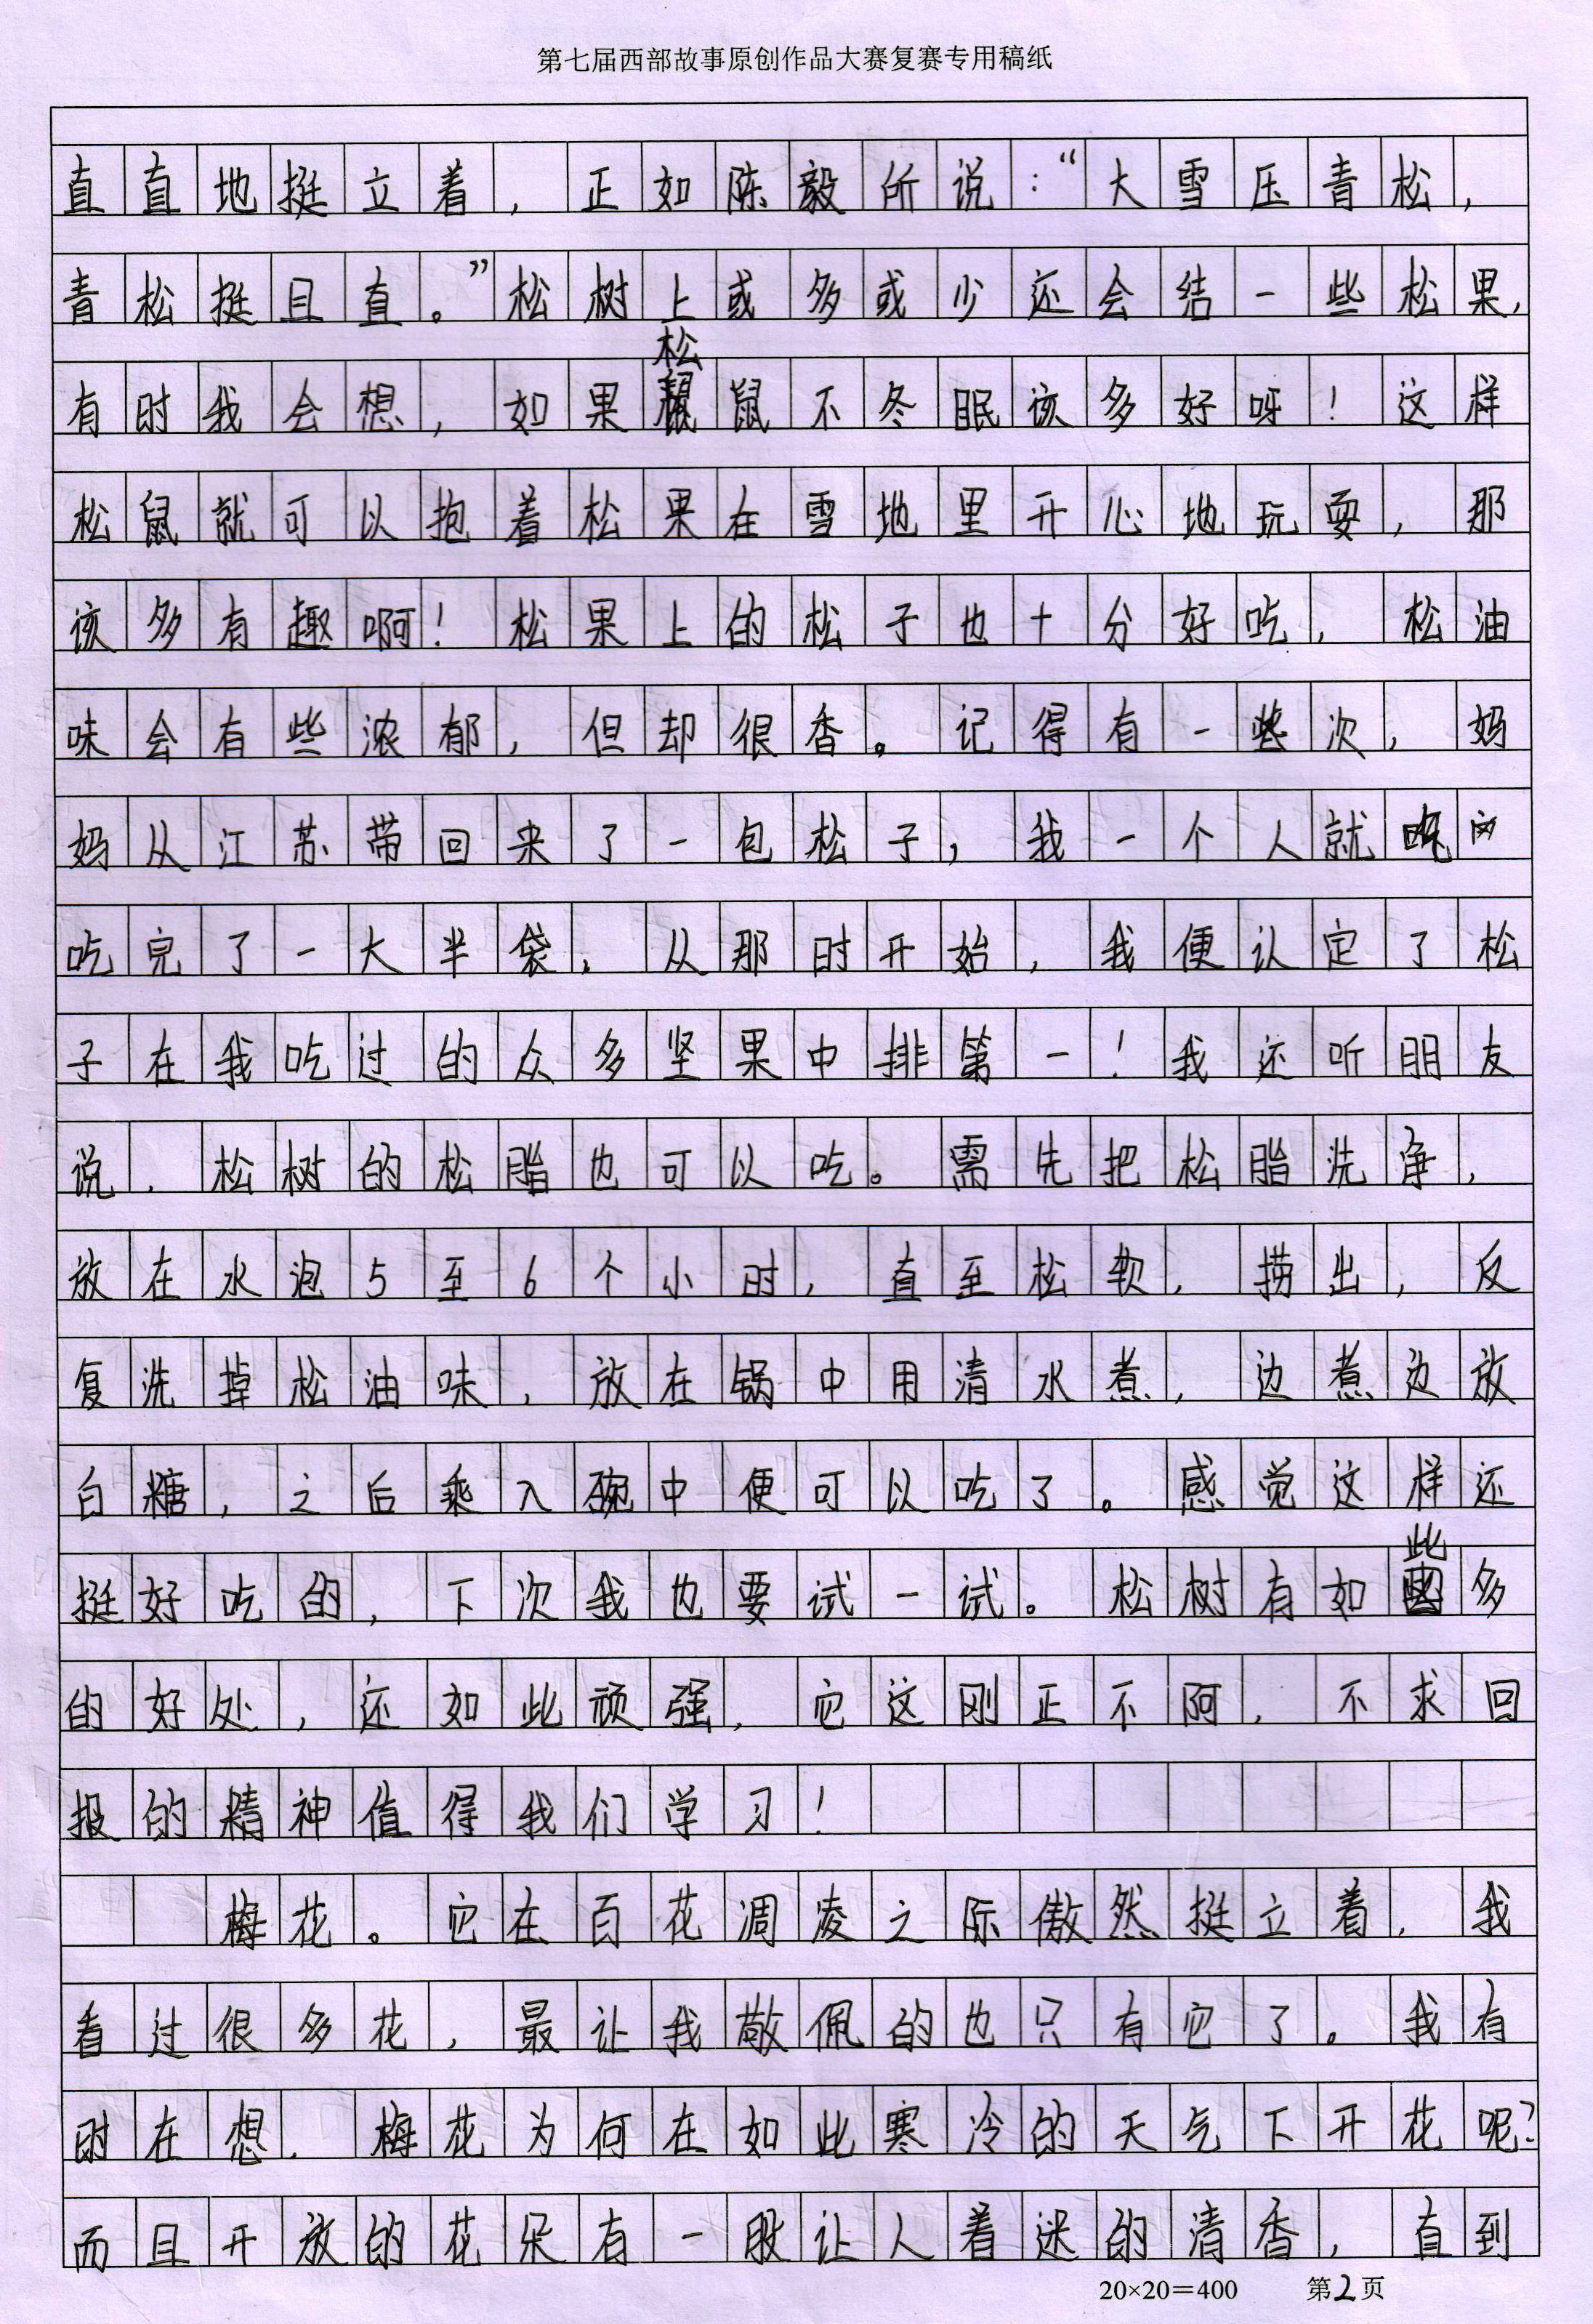 第七届西部故事原创作品大赛复赛专用稿纸
直直地挺立着，正如陈毅所说：“大雪压青松，
青松挺且直。”松树上或多或少还会结一些松果，
有时我会想，如果松鼠不冬眠该多好呀！这样
松鼠就可以抱着松果在雪地里开心地玩耍，那
该多有趣啊！松果上的松子也十分好吃，松油
味会有些浓郁，但却很香。记得有一些次，妈
妈从江苏带回来了一包松子，我一个人就
吃完了一大半袋，从那时开始，我便认定了松
子在我吃过的众多坚果中排第一！我还听朋友
说，松树的松脂也可以吃。需先把松脂洗净，
放在水泡5至6个小时，直至松软，捞出，反
复洗掉松油味，放在锅中用清水煮，边煮边放
白糖，之后乘入碗中便可以吃了。感觉这样还
挺好吃的，下次我也要试一试。松树有如此多
的好处，还如此顽强，它这刚正不阿，不求回
报的精神值得我们学习！
梅花。它在百花凋凌之际傲然挺立着，我
看过很多花，最让我敬佩的也只有它了。我有
时在想，梅花为何在如此寒冷的天气下开花呢？
而且开放的花朵有一股让人着迷的清香，直到
20×20＝400 第2页